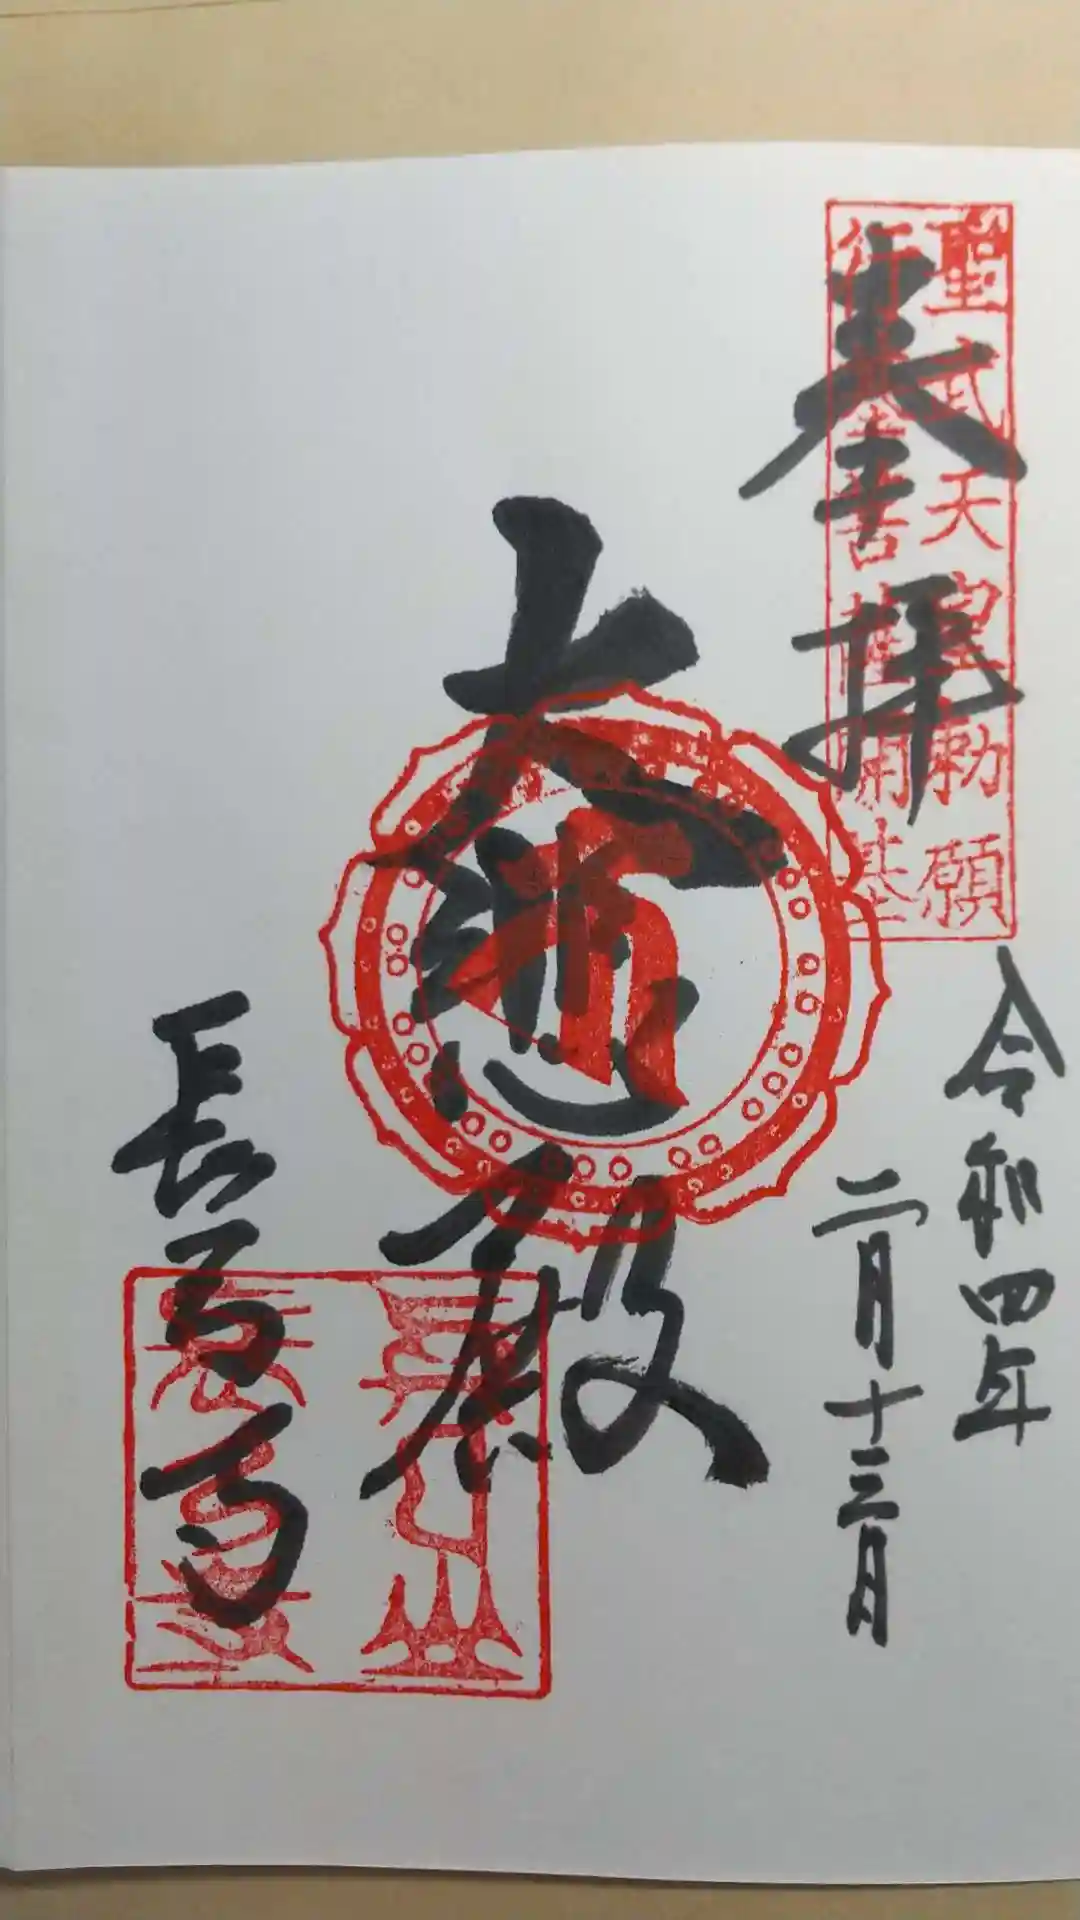 聖武天皇勅願
行基菩薩開基
奉拝
令和四年
二月十三日
大悲殿
長弓寺